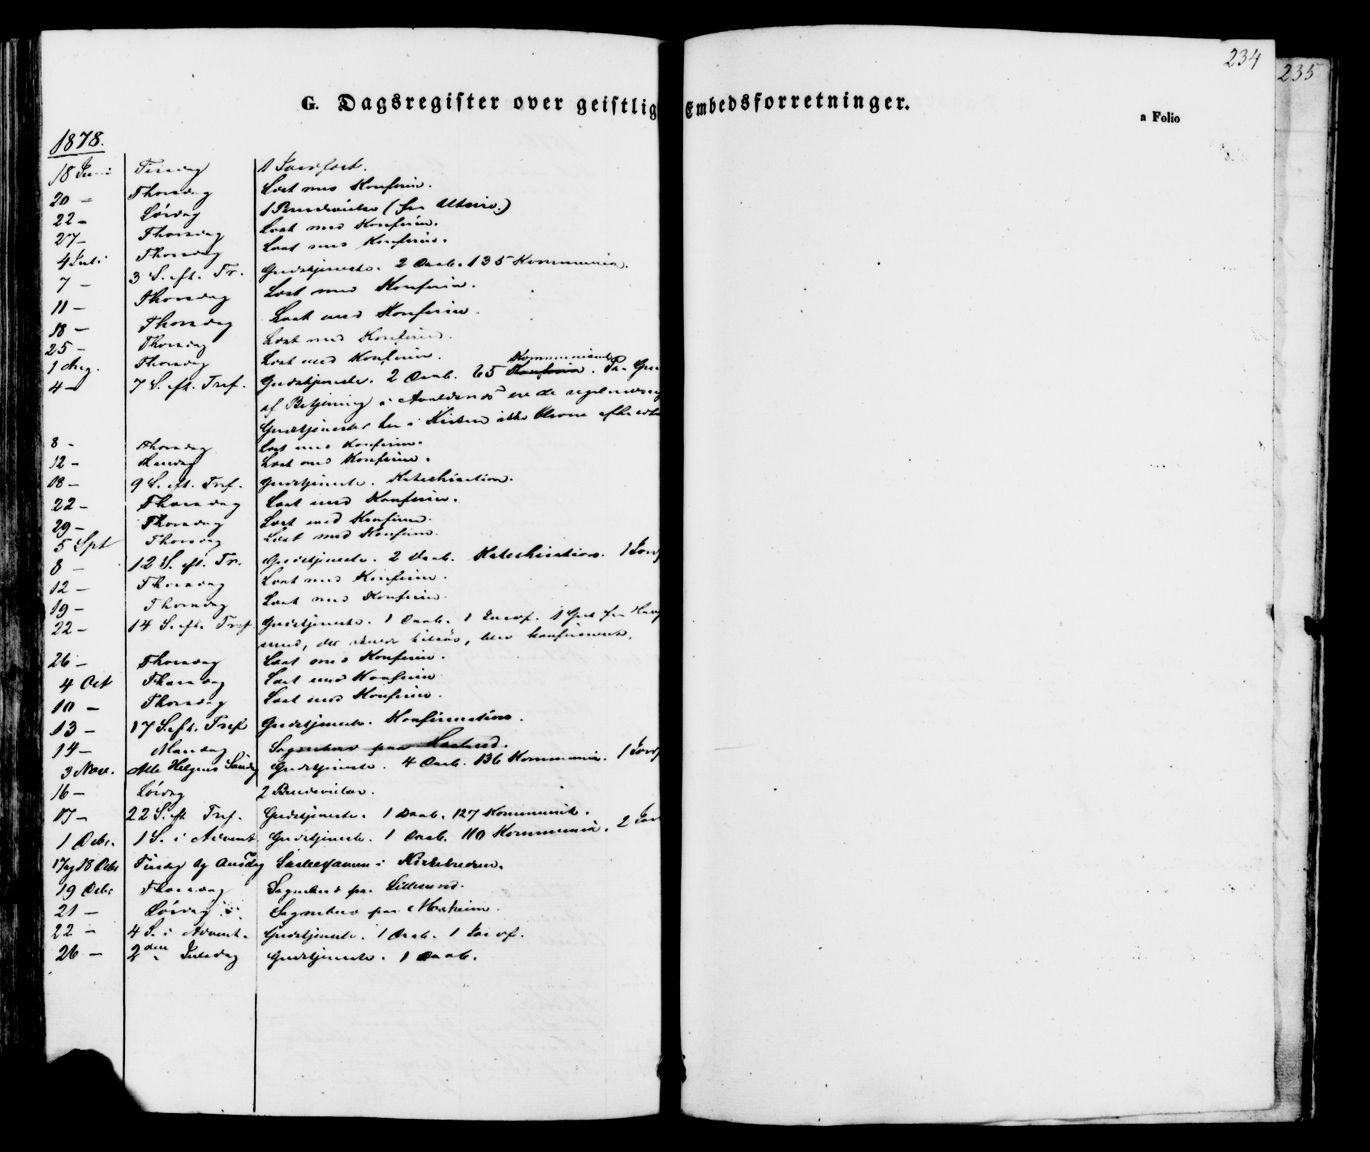 234
235
G. Dagsregister over geistlig Embedsforretninger.
a Folio
1878.
18 Juni Tirsdag 1 Jordfæst.
20 - Thorsdag Læst med Konfirm.
22 - Lördag 1 Brudevielse (fra Utsire.)
27 - Thorsdag Læst med Konfirm.
4 Juli Thorsdag Læst med Konfirm.
7 - 3 S. eft. Tr. Gudstjeneste. 2 Daab. 135 Kommunik.
11 - Thorsdag Læst med Konfirm.
18 - Thorsdag Læst med Konfirm.
25 - Thorsdag Læst med Konfirm.
1 Aug. Thorsdag Læst med Konfirm.
Kommunikanter
4 - 7 S. eft. Tref. Gudstjeneste. 2 Daab. 65 Konfirm. Paa Gru
af Betjening i Avaldsnes ere de
Gudstjenester her i Kirken ikke
8 - Thorsdag Læst med Konfirm.
12 - Mandag Læst med Konfirm.
18 - 9 S. eft. Tref. Gudstjeneste. Katechisation.
22 - Thorsdag Læst med Konfirm.
29 - Thorsdag Læst med Konfirm.
5 Spt Thorsdag Læst med Konfirm.
8 - 12 S. eft. Tr. Gudstjeneste. 2 Daab. Katechisation. 1 Jordf
12 - Thorsdag Læst med Konfirm.
19 - Thorsdag Læst med Konfirm.
22 - 14 S. eft. Tref. Gudstjeneste. 1 Daab. 1 Jordf. 1 Gut fra Hau
sund, der tilsös, blev konfirmeret.
26 - Thorsdag Læst med Konfirm.
4 Oct Thorsdag Læst med Konfirm
10 - Thorsdag Læst med Konfirm.
13 - 17 S. eft. Tref Gudstjeneste. Konfirmation.
14 - Mandag Sognebud paa
3 Nov. Alle Helgens Söndag Gudstjeneste. 4 Daab. 136 Kommunik. 1 Jordf
16 - Lördag 2 Brudevielser.
17 - 22 S. eft Tref. Gudstjeneste. 1 Daab. 127 Kommunik.
1 Debr. 1 S. i Advent Gudstjeneste. 1 Daab. 110 Kommunik. 2 Jord
17 og 18 Debr Tirsdag og Onsdag Skoleexamen i Kirkekredsen.
19 Debr Thorsdag Sognebud paa
21 - Lördag Sognebud paa
22 - 4 S. i Advent. Gudstjeneste. 1 Daab. 1 Jordf.
26 - 2den Juledag Gudstjeneste. 1 Daab.